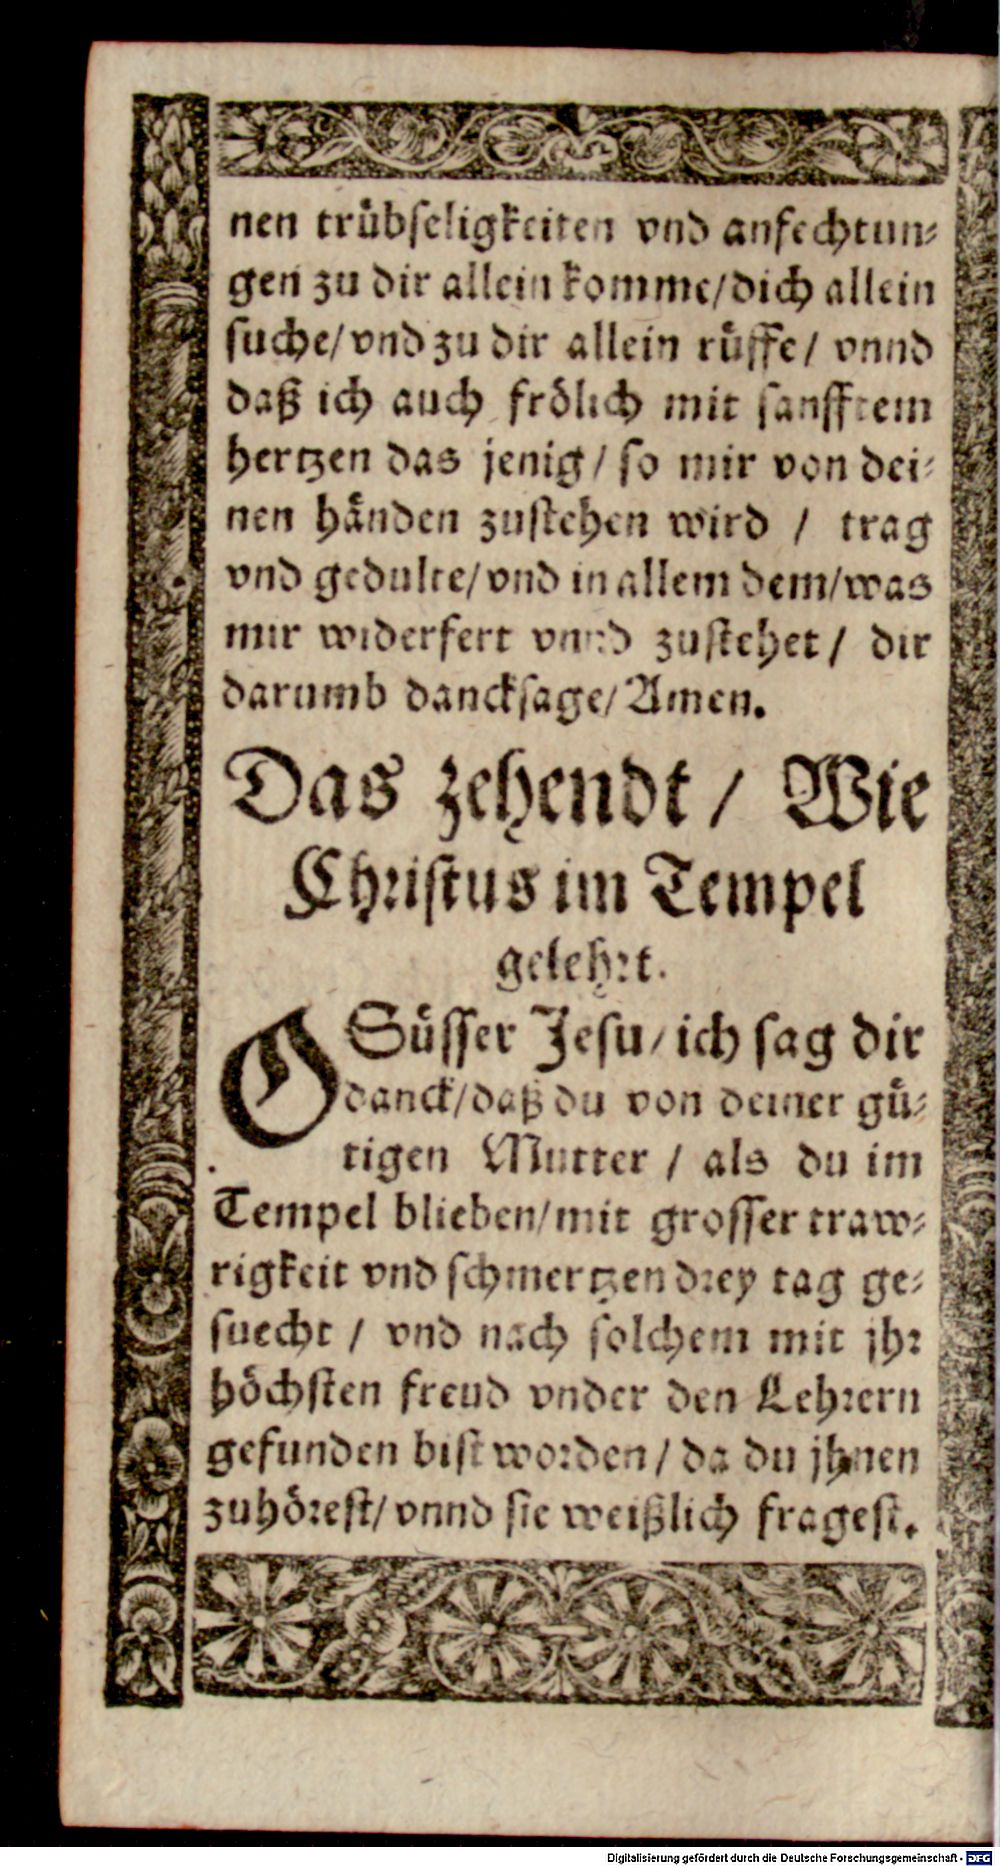 nen trübseligkeiten vnd anfechtun-
gen zu dir allein komme/dich allein
suche/vnd zu dir allein rüffe/ vnnd
daß ich auch frölich mit sanfftem
hertzen das jenig/ so mir von dei-
nen händen zustehen wird / trag
vnd gedulte/vnd in allem dem/was
mir widerfert vnnd zustehet/ dir
darumb dancksage/Amen.
Das zehendt/ Wie
Christus im Tempel
gelehrt.
O Süsser Jesu/ich sag dir
danck/daß du von deiner gü-
tigen Mutter / als du im
Tempel blieben/mit grosser traw-
rigkeit vnd schmertzen drey tag ge-
suecht / vnd nach solchem mit jhr
höchsten freud vnder den Lehrern
gefunden bist worden/ da du jhnen
zuhörest/vnnd sie weißlich fragest.
Digitalisierung gefördert durch die Deutsche Forschungsgemeinschaft - DFG